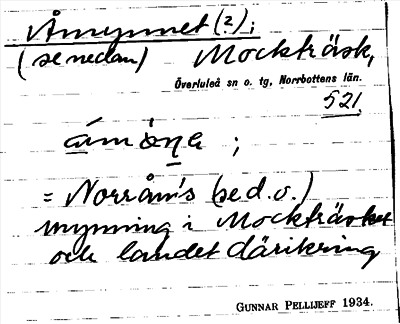 Åmynnet (2);
(se nedan) Mockträsk,
Överluleå sn o. tg, Norrbottens län.
521
= Norråns (se d. o.)
mynning i Mockträsket
och landet däritkring
GUNNAR PELLIJEFF 1934.